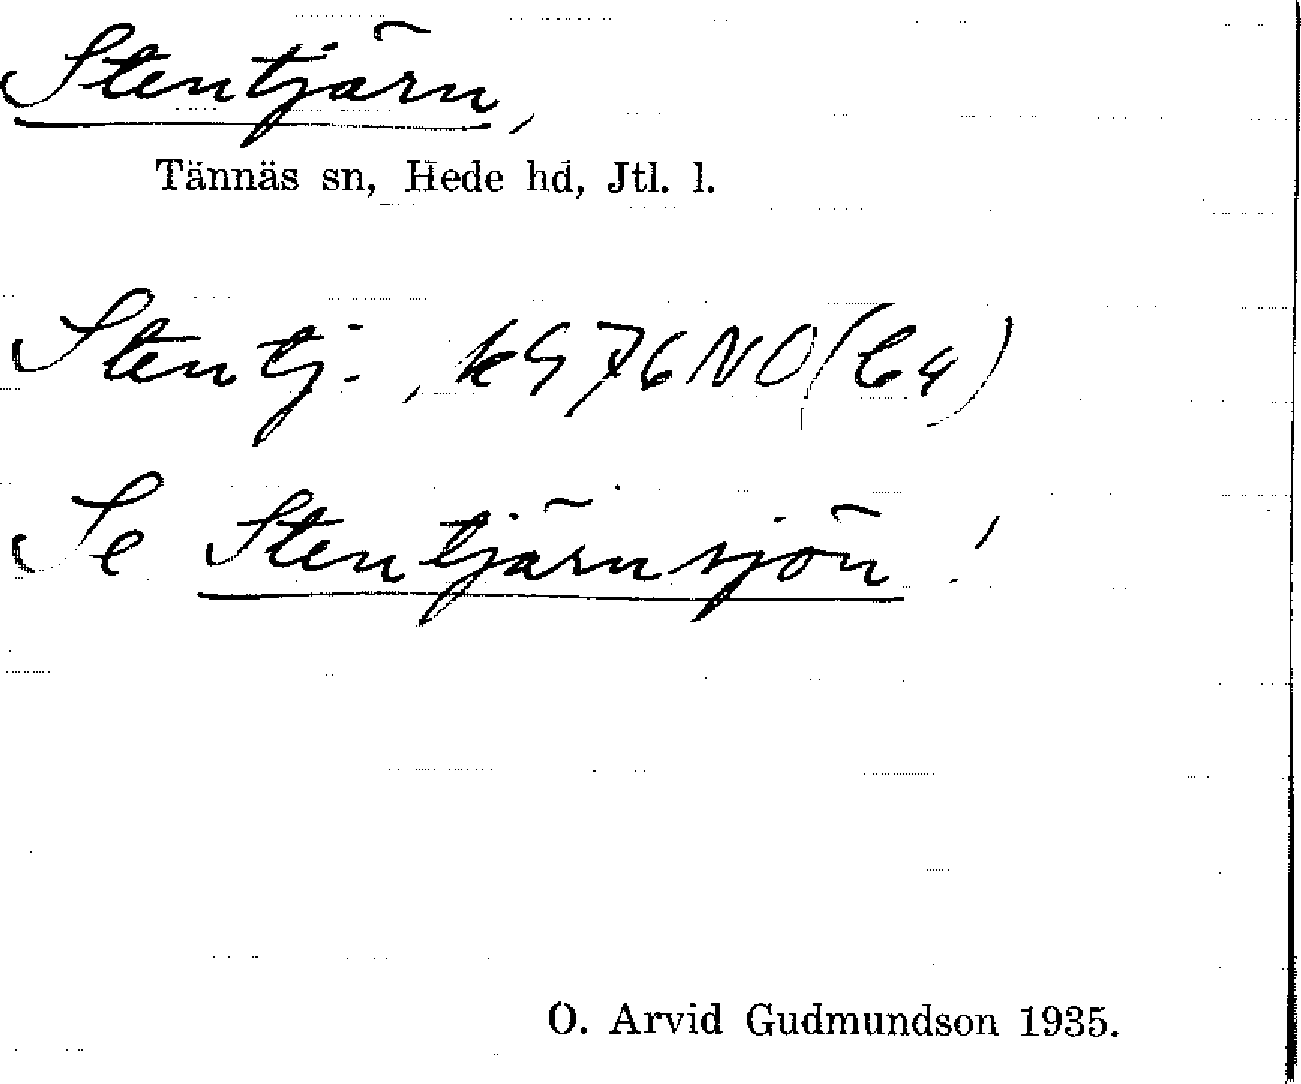 Stentjärn,
Tännäs sn, Hede hd, Jtl. l.
Stentj., kG 76 NO (C4)
Se Stentjärnsjön!
O. Arvid Gudmundson 1935.